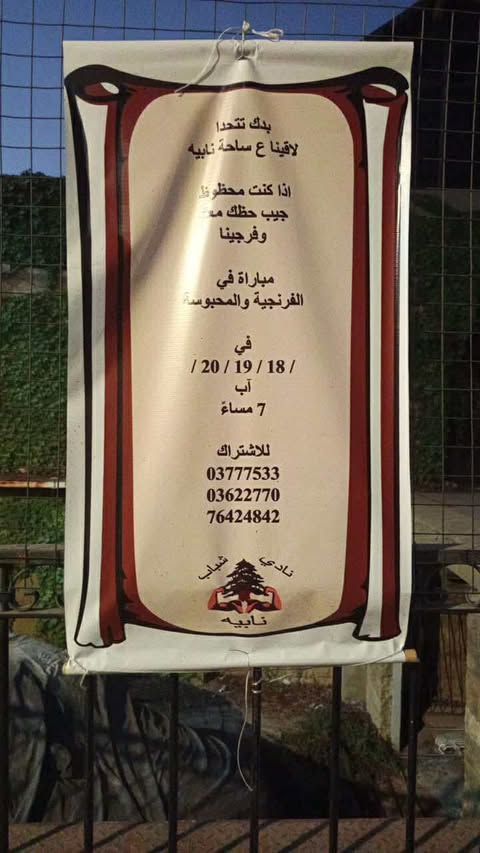 بدك تتحدا
لاقينا ع ساحة نابيه
اذا كنت محظوظ
جيب حظك معك
وفرجينا
مباراة في
الفرنجية والمحبوسة
في
/ 18 / 19 / 20 /
آب
7 مساءً
للاشتراك
03777533
03622770
76424842
نادي شباب
نابيه